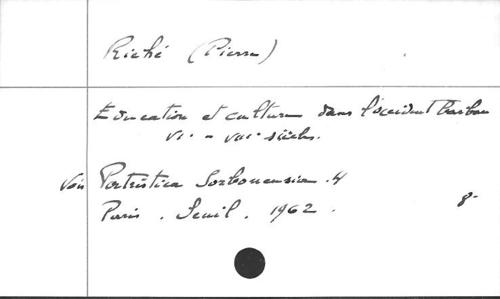 Riché (Pierre)
Education et culture dans l'occident barbare
VIe - VIIIe siècles.
Voir Patristica Sorbonensia. 4
Paris. Seuil. 1962. 8°